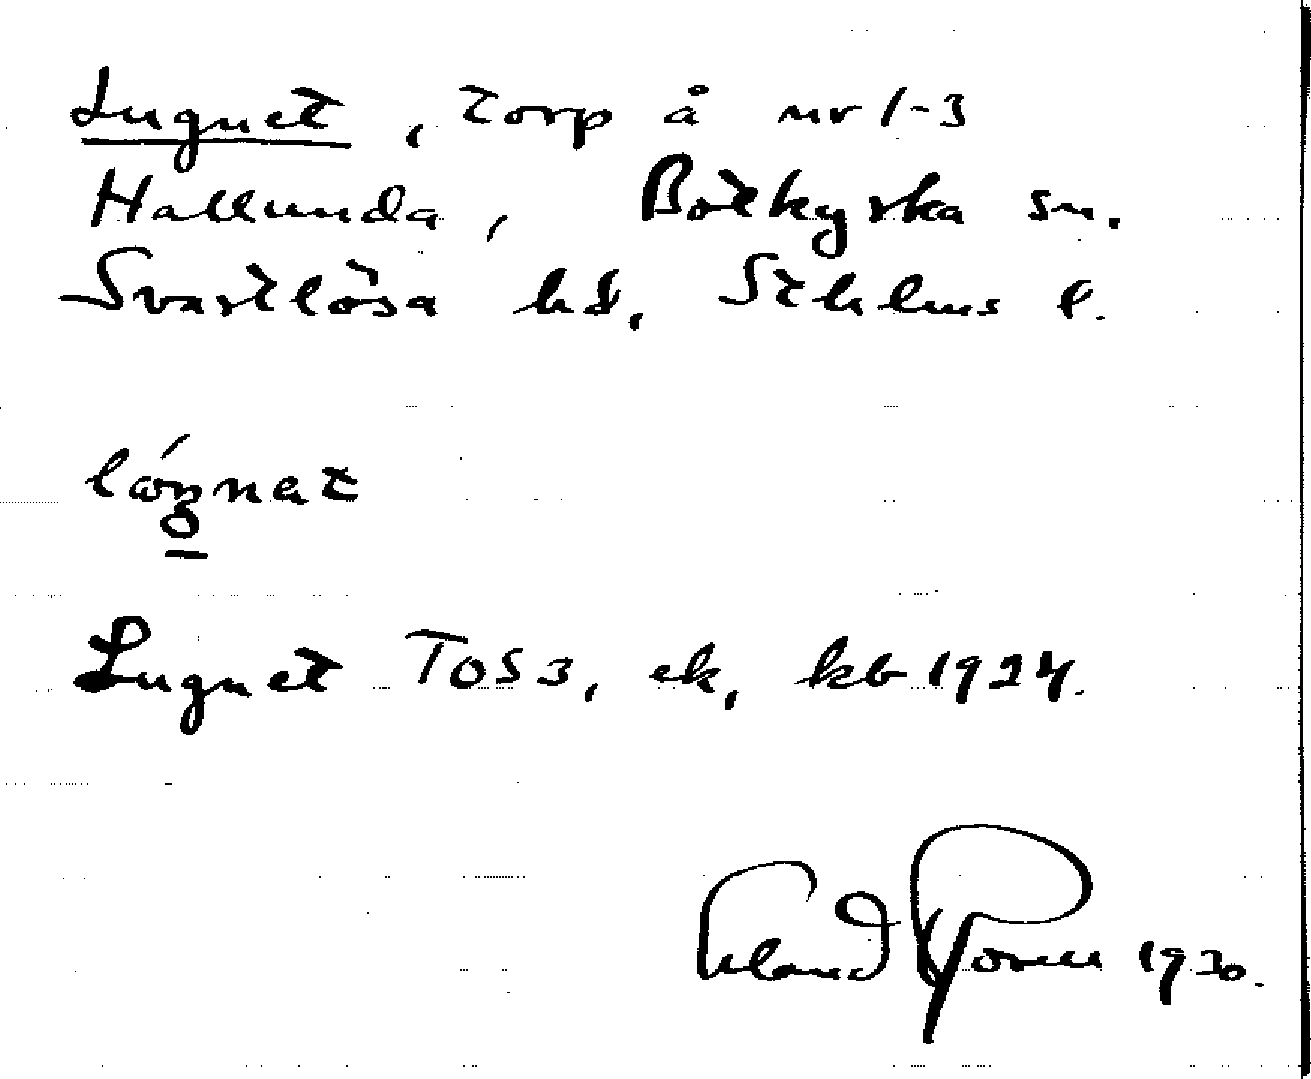 Lugnet, torp å nr 1-3
Hallunda, Botkyrka sn.
Svartlösa hd, Sthlms l.
lógnat
Lugnet TOS3, ek, kb 1924.
Erland Rosell 1930.